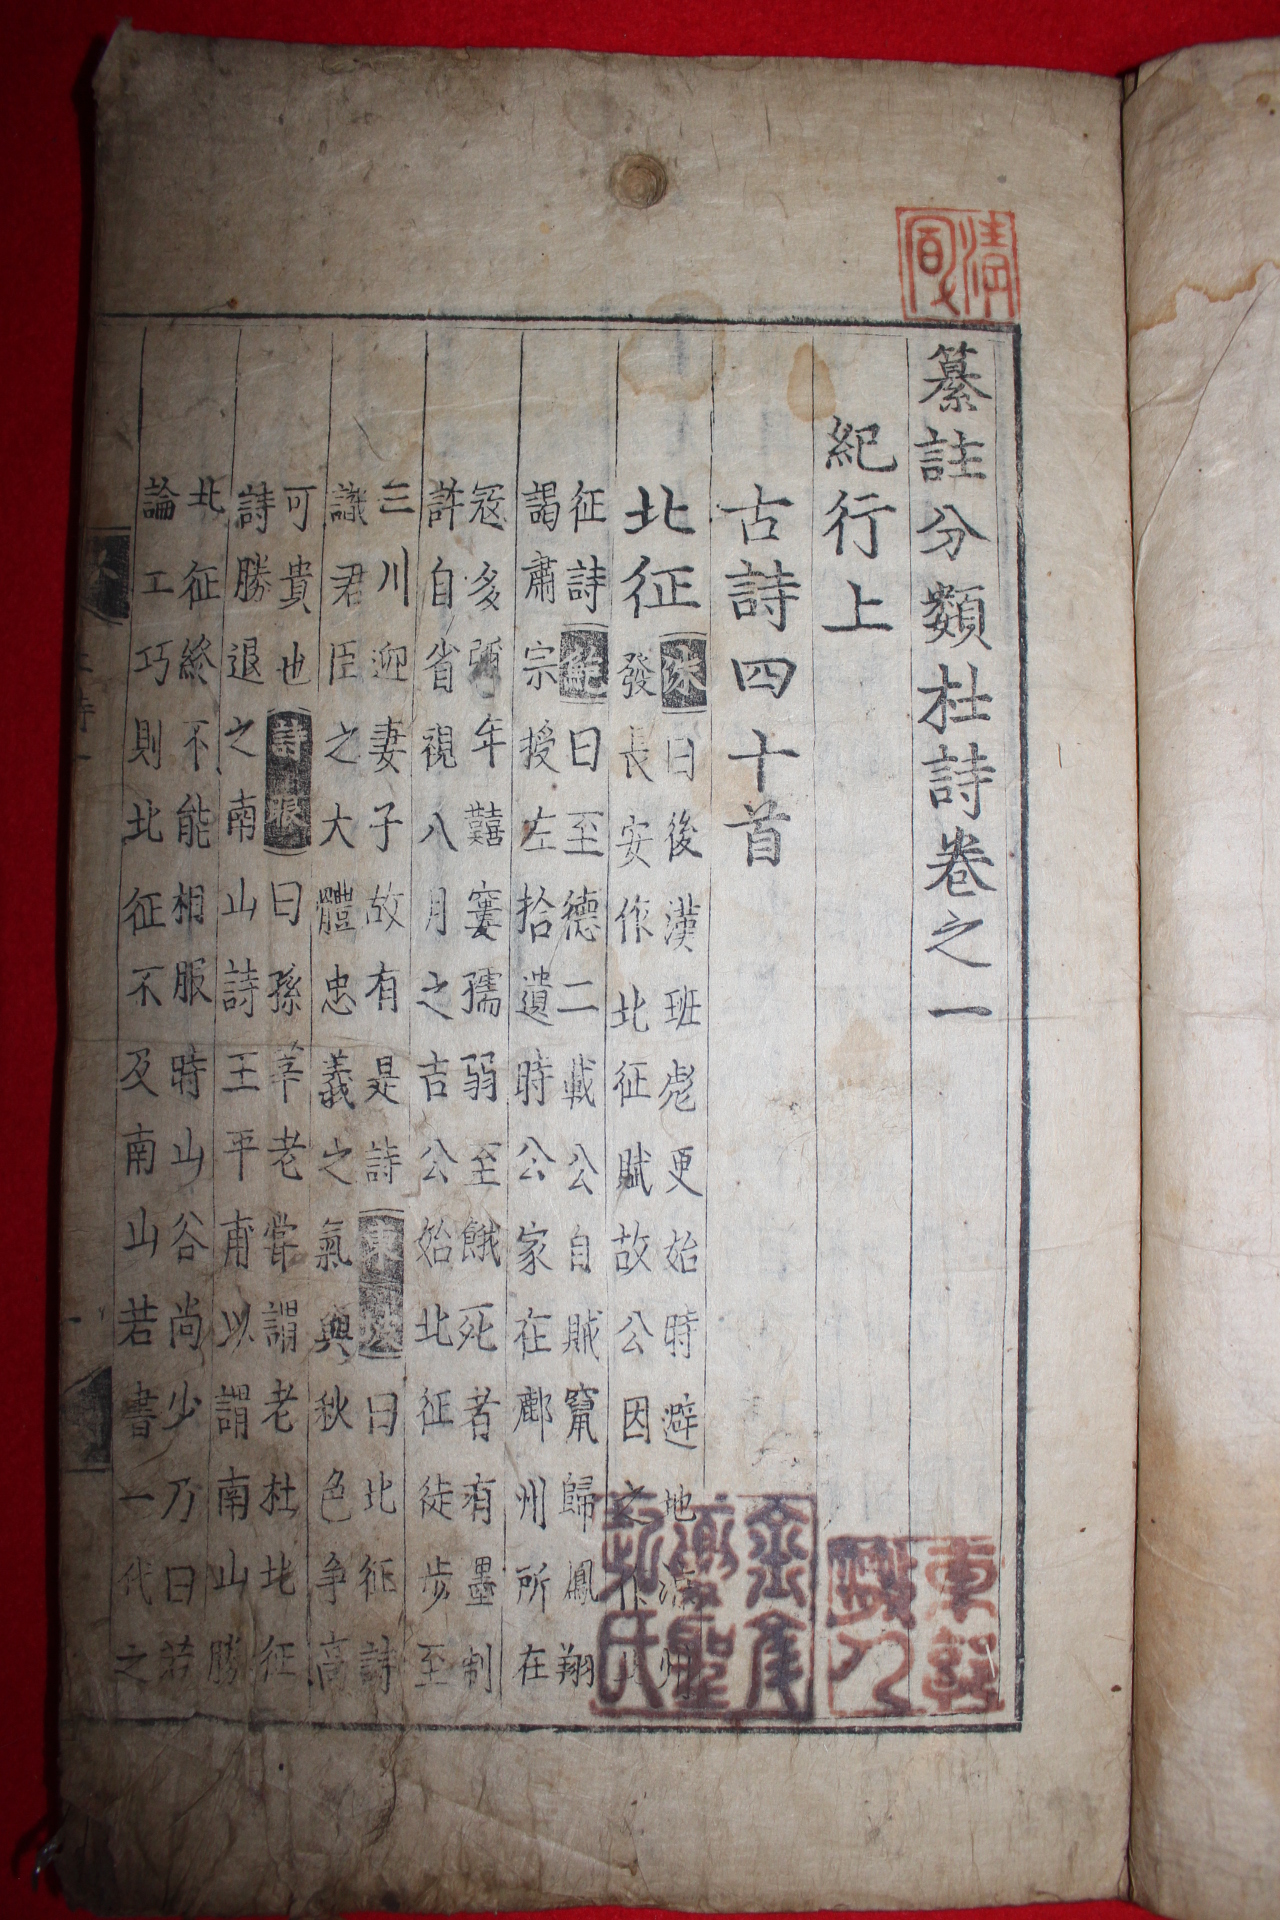 纂註分類杜詩卷之一
紀行上
古詩四十首
北征
洙曰後漢班彪更始時避地涼州
發長安作北征賦故公因之作
征詩鮑曰至德二載公自賊竄歸鳳翔
謁肅宗授左拾遺時公家在鄜州所在
寇多彌年囏窶孺弱至餓死者有墨制
許自省視八月之吉公始北征徒步至
三川迎妻子故有是詩東萊曰北征詩
識君臣之大體忠義之氣與秋色爭高
可貴也詩眼曰孫莘老嘗謂老杜北征
詩勝退之南山詩王平甫以謂南山勝
北征終不能相服時山谷尚少乃曰若
論工巧則北征不及南山若書一代之